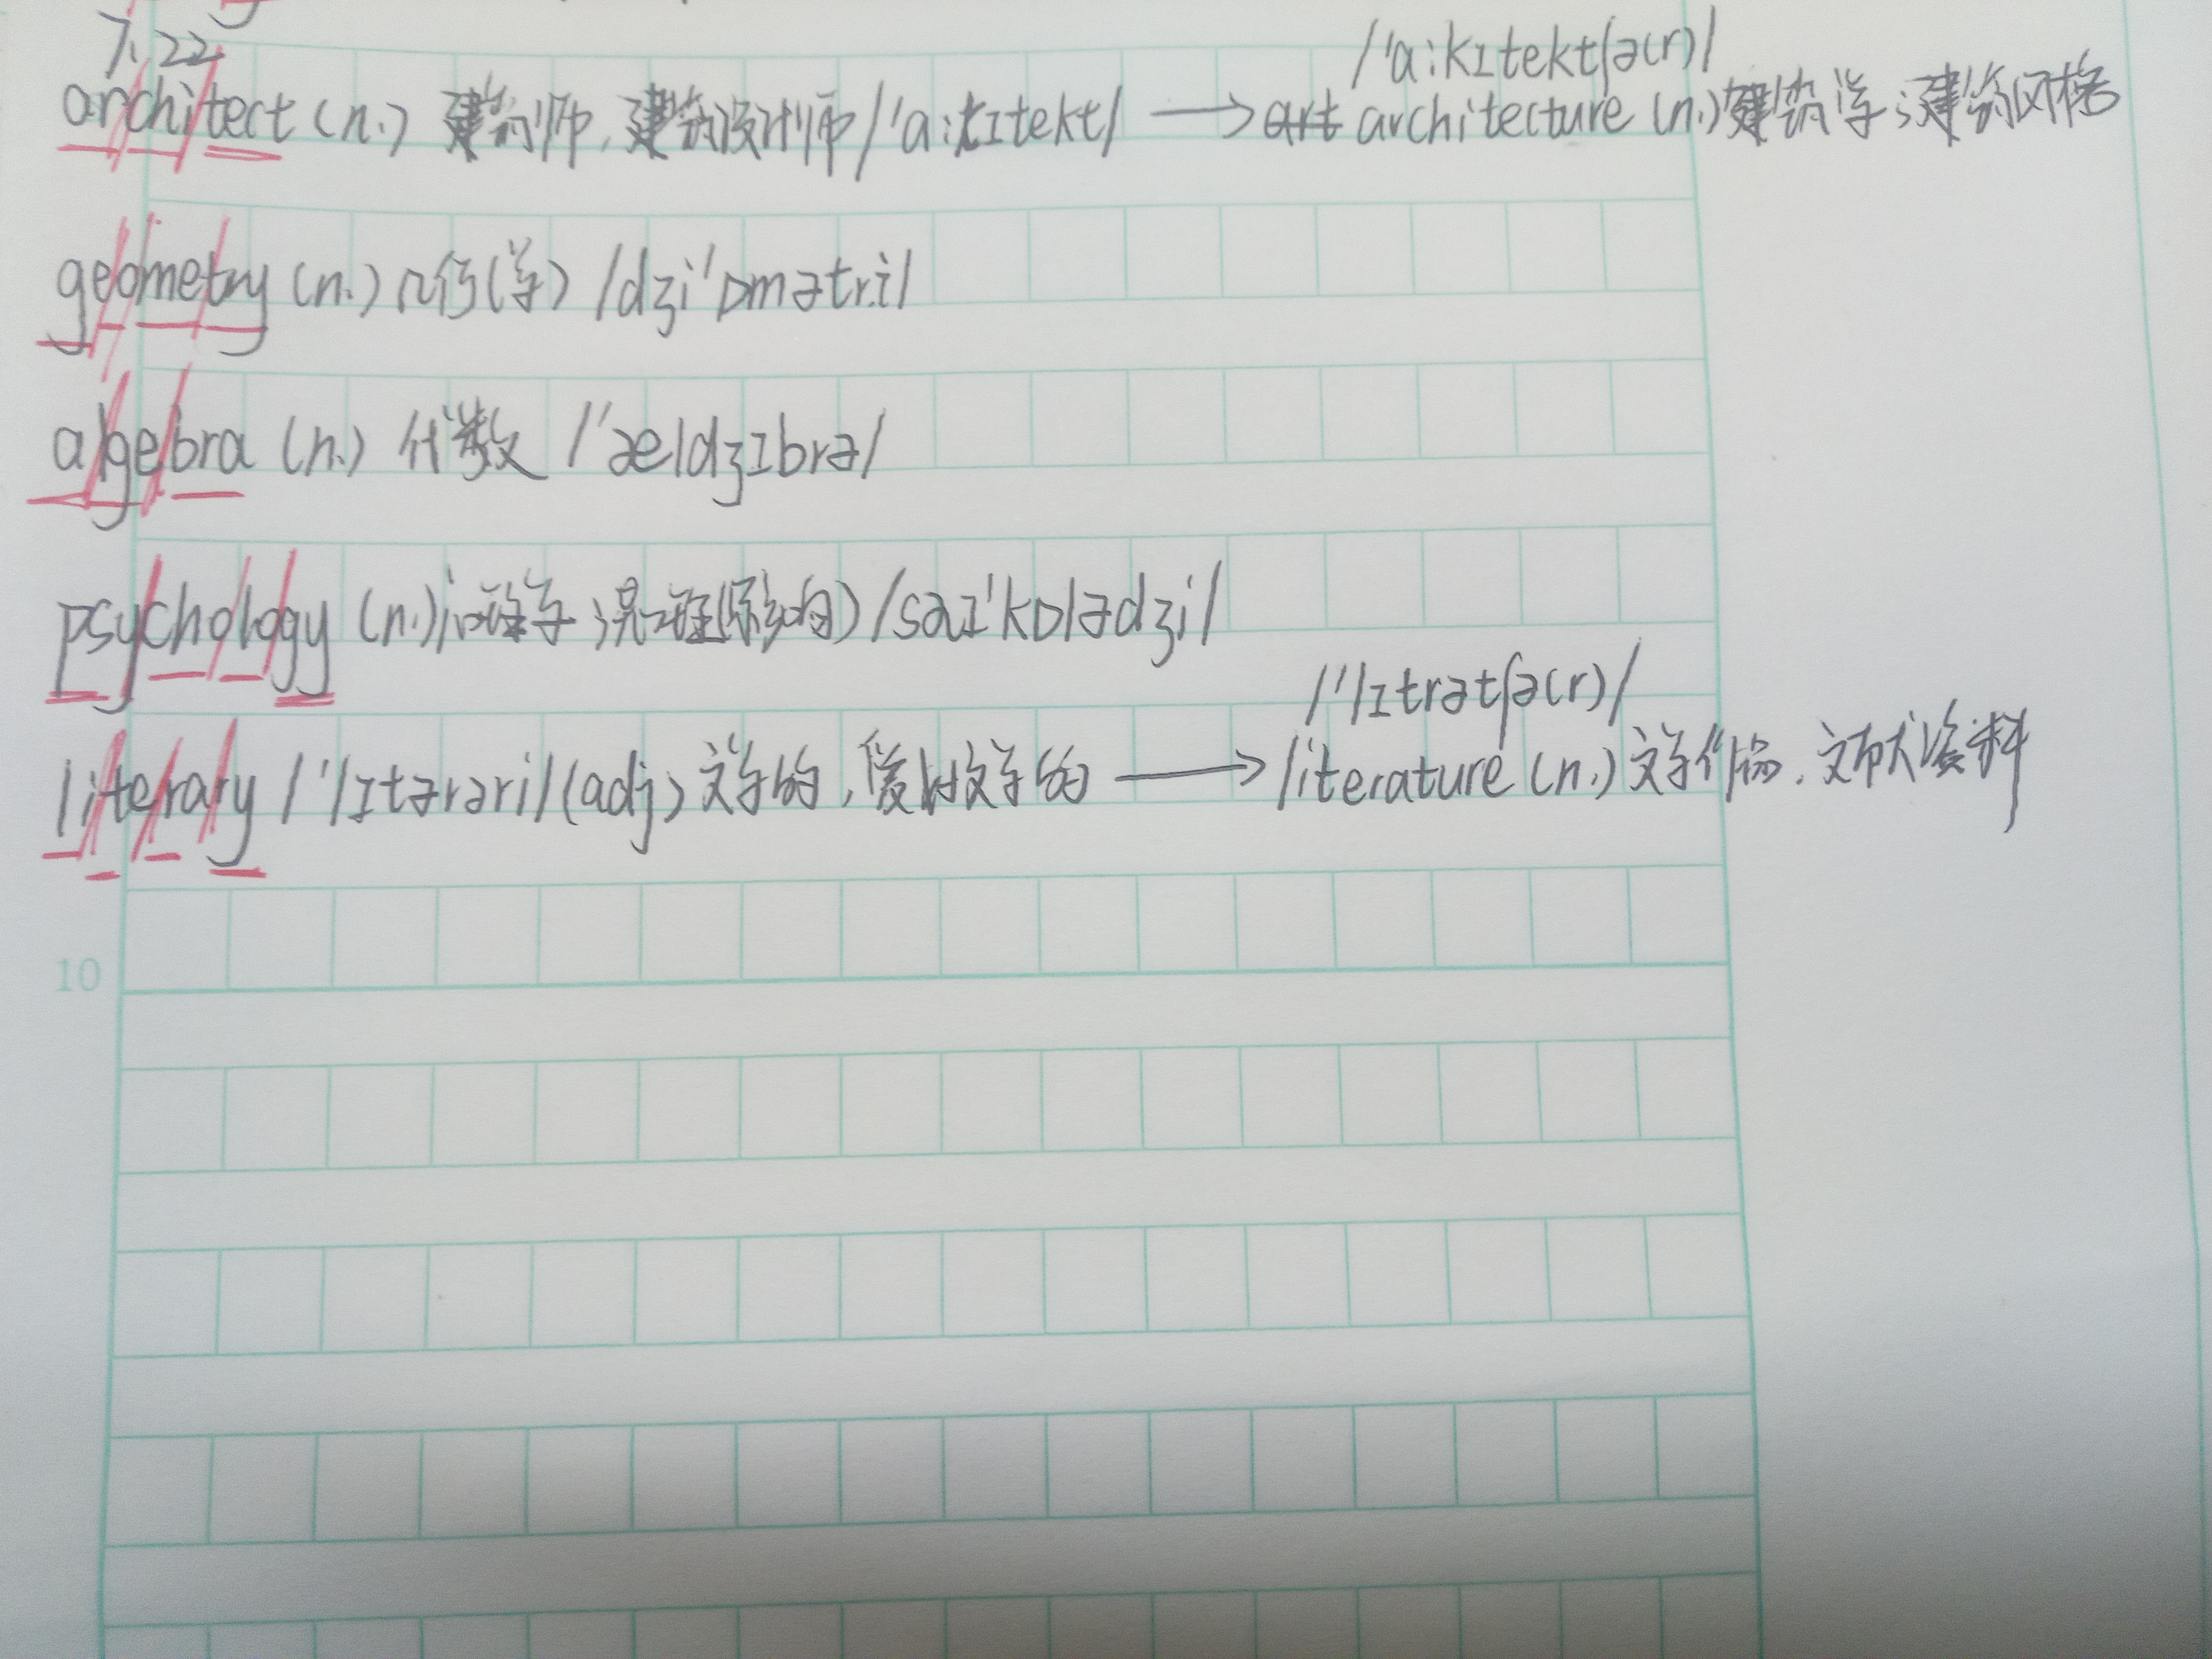 7.22
/'a:kɪtektʃə(r)/
architect (n.) 建筑师,建筑设计师 /'a:kɪtekt/ → architecture (n.) 建筑学;建筑风格
geometry (n.) 几何(学) /dʒi'ɒmətri/
algebra (n.) 代数 /'ældʒɪbrə/
psychology (n.) 心理学; /saɪ'kɒlədʒi/
/'lɪtrətʃə(r)/
literary /'lɪtərəri/ (adj) 文学的, 文学的 → literature (n.) 文学作品,文献资料
10